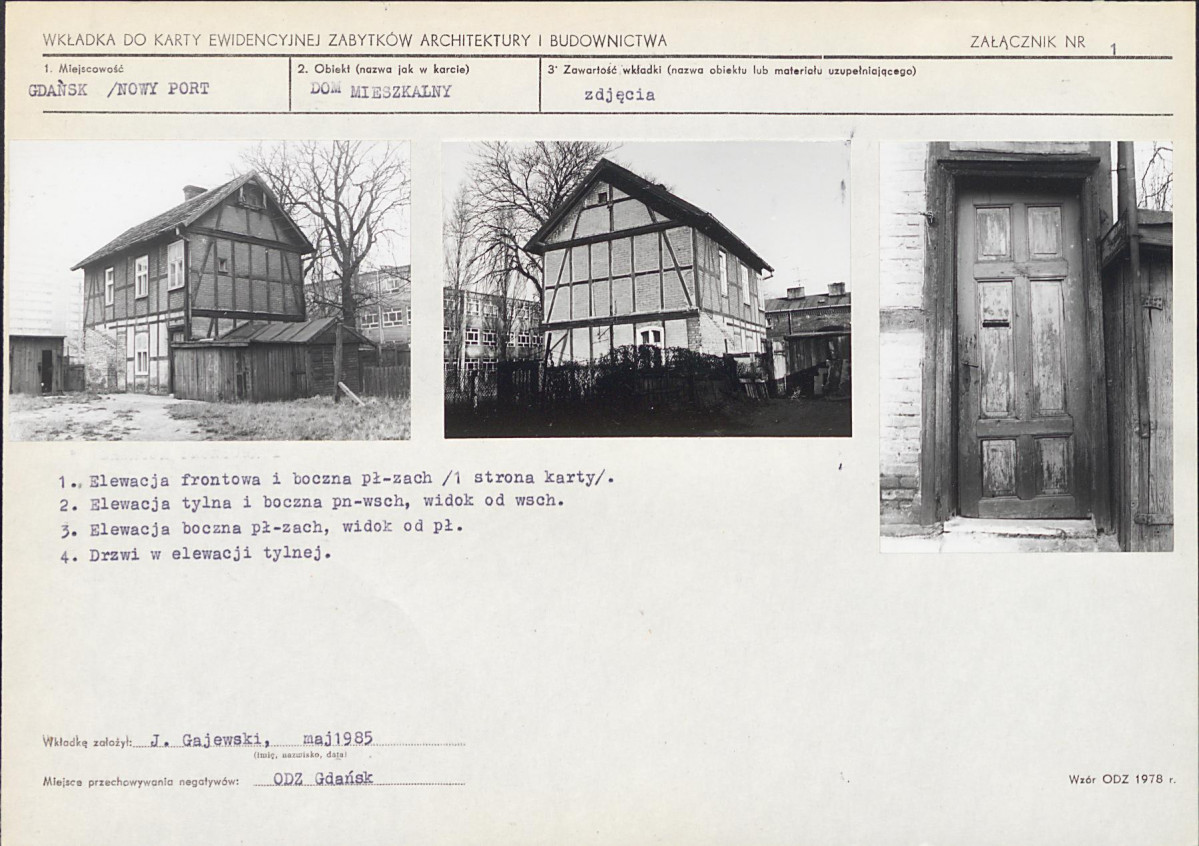 WKŁADKA DO KARTY EWIDENCYJNEJ ZABYTKÓW ARCHITEKTURY I BUDOWNICTWA
ZAŁĄCZNIK NR 1
1. Miejscowość
GDAŃSK /NOWY PORT
2. Obiekt (nazwa jak w karcie)
DOM MIESZKALNY
3. Zawartość wkładki (nazwa obiektu lub materiału uzupełniającego)
zdjęcia
1. Elewacja frontowa i boczna pł-zach /1 strona karty/.
2. Elewacja tylna i boczna pn-wsch, widok od wsch.
3. Elewacja boczna pł-zach, widok od pł.
4. Drzwi w elewacji tylnej.
Wkładkę założył: J. Gajewski, maj1985
(imię, nazwisko, data)
Miejsce przechowywania negatywów: ODZ Gdańsk
Wzór ODZ 1978 r.